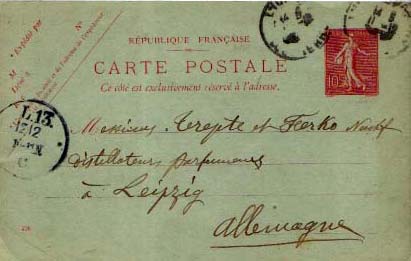 Expédié par
M
RÉPUBLIQUE FRANÇAISE
CARTE POSTALE
Ce côté est exclusivement réservé à l'adresse.
10
L.13.
12 12
Messieurs Trepte et Ferko Nachf
distillateurs parfumeurs
à Leipzig
Allemagne